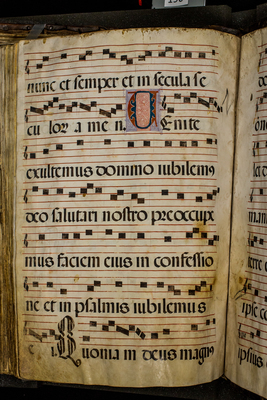 nunc et semper et in secula se
cu lor a me n. Uenite
exultemus domino iubilemꝰ
deo salutari nostro preoccupe
mus faciem eius in confessio
ne et in psalmis iubilemus
e i. Quoniam deus magnꝰ